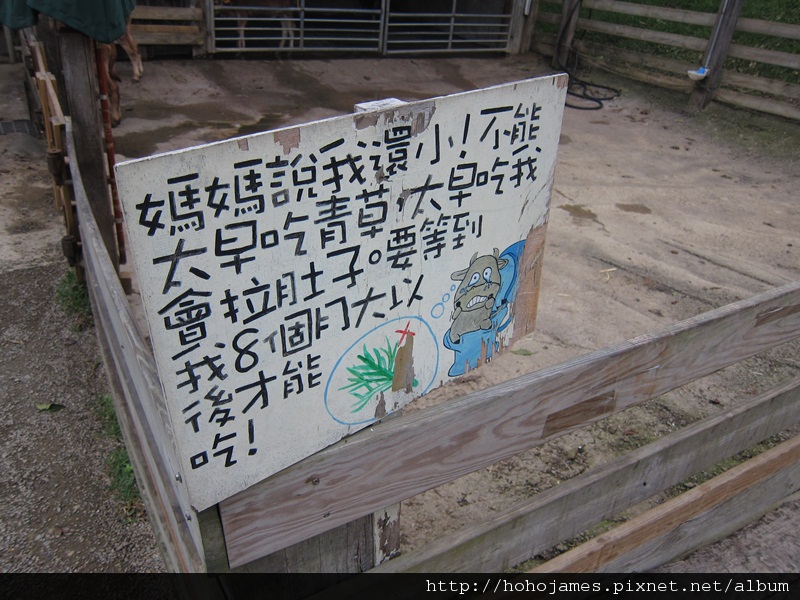 媽媽說我還小!不能
太早吃青草,太早吃我
會拉肚子。要等到
我8個月大以
後才能
吃!
http://hohojames.pixnet.net/album